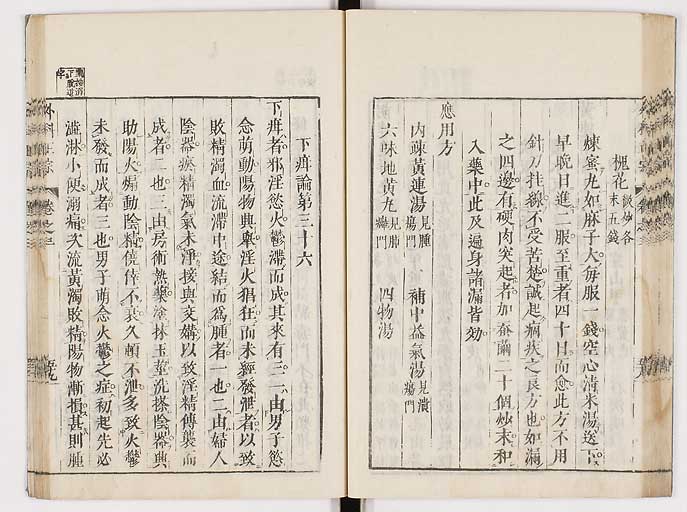 槐花微炒各末五錢
煉蜜丸如麻子大每服一錢空心清米湯送下
早晚日進二服至重者四十日而愈此方不用
針刀挂線不受苦楚誠起痼疾之良方也如漏
之四邊有硬肉突起者加蠶繭二十個炒末和
入藥中此及遍身諸漏皆効
應用方
內疎黃連湯見腫瘍門 補中益氣湯見潰瘍門
六味地黃丸見肺癰門 四物湯
下疳論第三十六
下疳者邪淫慾火鬱滯而成其來有三一由男子慾
念萌動陽物興舉淫火猖狂而未經發泄者以致
敗精濁血流滯中途結而爲腫者一也二由婦人
陰器瘀精濁氣未淨接與交媾以致淫精傳襲而
成者二也三由房術熱藥塗抹玉莖洗搽陰器興
助陽火煽動陰精僥倖不衰久頓不泄多致火鬱
未發而成者三也男子萌念火鬱之症初起先必
澁淋小便溺痛次流黃濁敗精陽物漸損甚則腫
外科正宗
卷之三